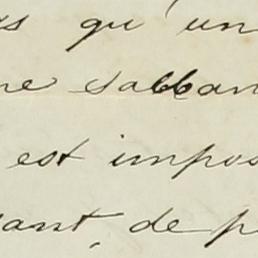 s qu'un
ne sabban
est impos
sant, de p